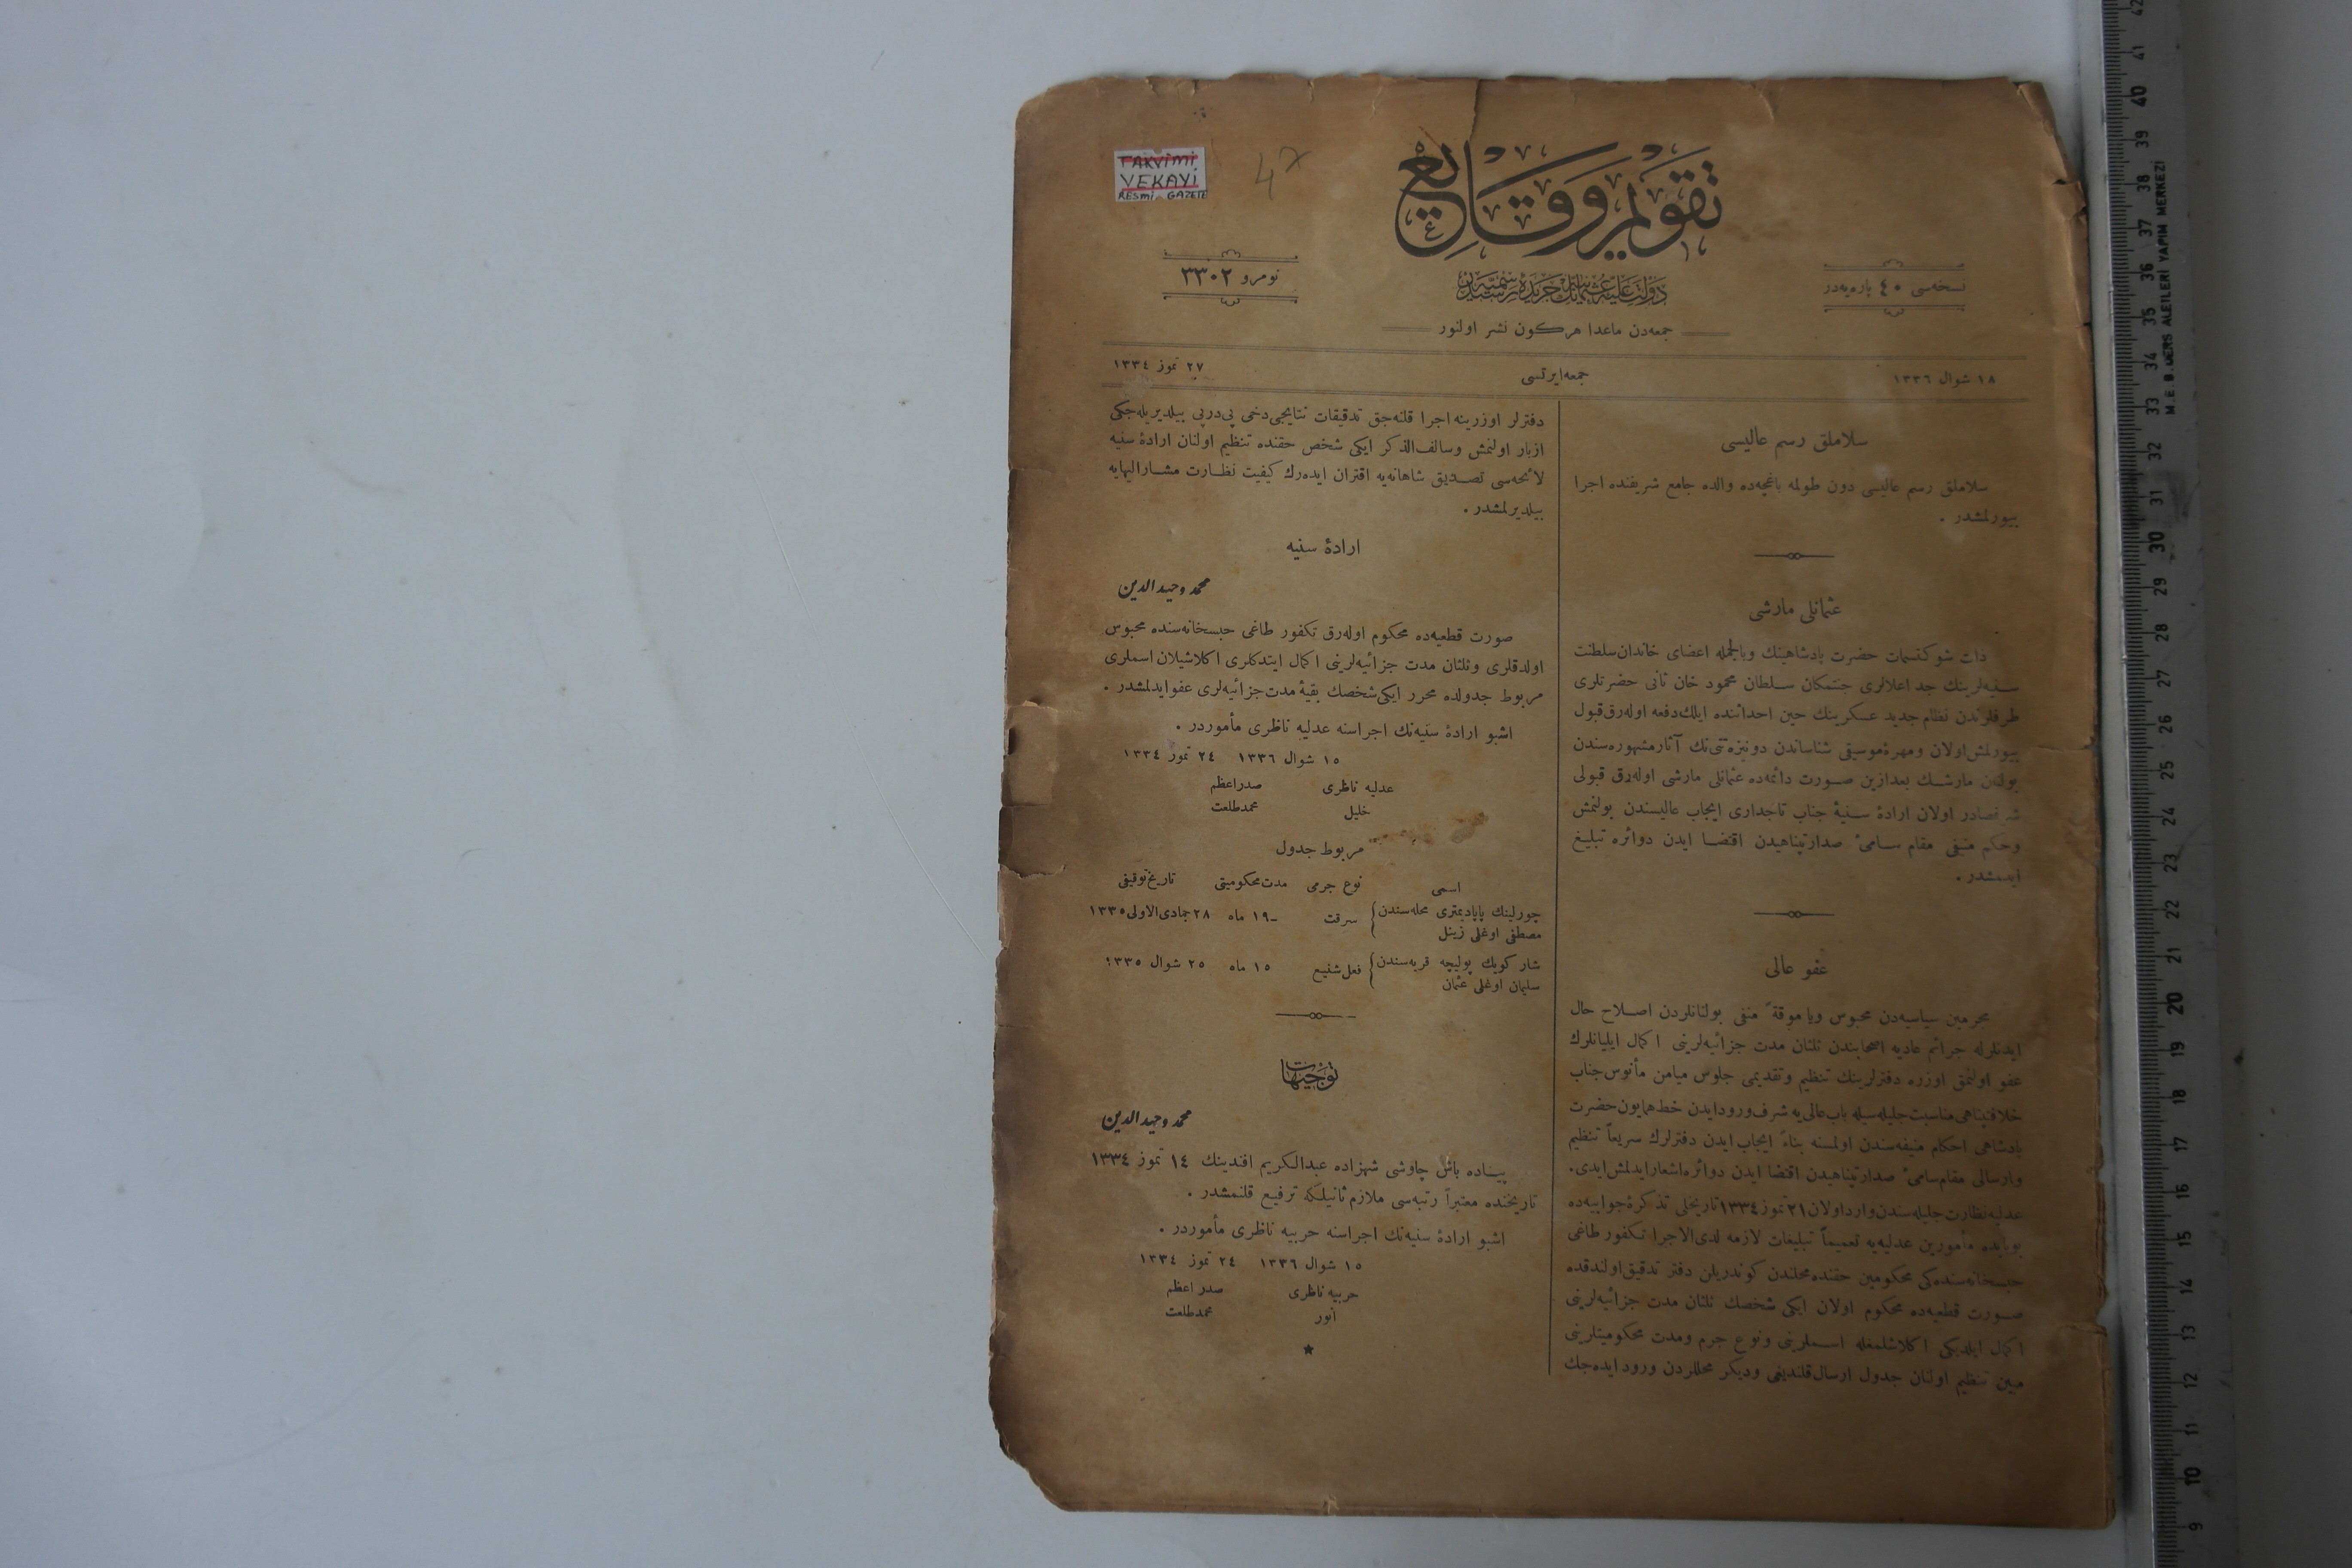 TAKVİMİ
VEKAYİ
RESMİ GAZETE
47
تقویم وقایع
نومرو ٣٣٠٢
نسخه‌سی ٤٠ پاره‌یه‌در
دولت علیه عثمانیه‌نك جریدهٔ رسمیه‌سیدر
جمعه‌دن ماعدا هر كون نشر اولنور
١٨ شوال ١٣٣٦
جمعه ایرتسی
٢٧ تموز ١٣٣٤
سلاملق رسم عالیسی
سلاملق رسم عالیسی دون طولمه باغچه‌ده والده جامع شریفنده اجرا
بیورلمشدر .
عثمانلی مارشی
ذات شوكتسمات حضرت پادشاهینك وبالجمله اعضای خاندان سلطنت
سنیه‌لرینك جد اعلالری جنتمكان سلطان محمود خان ثانی حضرتلری
طرفلرندن نظام جدید عسكرینك حین احداثنده ایلك دفعه اوله‌رق قبول
بیورلمش اولان ومهرهٔ موسیقی شناساندن دونیزه‌تتی‌نك آثار مشهوره‌سندن
بولنان مارشك بعدازین صورت دائمه‌ده عثمانلی مارشی اوله‌رق قبولی
شرفصادر اولان ارادهٔ سنیهٔ جناب تاجداری ایجاب عالیسندن بولنمش
وحكم منیفی مقام سامیٔ صدارتپناهیدن اقتضا ایدن دوائره تبلیغ
ایدلمشدر .
عفو عالی
مجرمین سیاسیه‌دن محبوس ویا موقةً منفی بولنانلردن اصلاح حال
ایدنلرله جرائم عادیه اصحابندن ثلثان مدت جزائیه‌لرینی اكمال ایلیانلرك
عفو اولنمق اوزره دفترلرینك تنظیم وتقدیمی جلوس میامن مأنوس جناب
خلافتپناهی مناسبت جلیله‌سیله باب عالی‌یه شرفورود ایدن خط همایون حضرت
پادشاهی احكام منیفه‌سندن اولمسنه بناءً ایجاب ایدن دفترلرك سریعاً تنظیم
وارسالی مقام سامیٔ صدارتپناهیدن اقتضا ایدن دوائره اشعار ایدلمش ایدی.
عدلیه نظارت جلیله‌سندن وارد اولان ٢١ تموز ١٣٣٤ تاریخلی تذكرهٔ جوابیه‌ده
بوبابده مأمورین عدلیه‌یه تعمیماً تبلیغات لازمه لدی‌الاجرا تكفور طاغی
حبسخانه‌سنده‌كی محكومین حقنده محلندن كوندریلن دفتر تدقیق اولندقده
صورت قطعیه‌ده محكوم اولان ایكی شخصك ثلثان مدت جزائیه‌لرینی
اكمال ایلدیكی اكلاشلمغله اسملرینی ونوع جرم ومدت محكومیتلرینی
مبین تنظیم اولنان جدول ارسال قلندیغی ودیكر محللردن ورود ایده‌جك
دفترلر اوزرینه اجرا قلنه‌جق تدقیقات نتایجی دخی پی‌درپی بیلدیریله‌جكی
ازبار اولنمش وسالف‌الذكر ایكی شخص حقنده تنظیم اولنان ارادهٔ سنیه
لائحه‌سی تصدیق شاهانه‌یه اقتران ایده‌رك كیفیت نظارت مشارالیهایه
بیلدیرلمشدر .
ارادهٔ سنیه
محمد وحیدالدین
صورت قطعیه‌ده محكوم اوله‌رق تكفور طاغی حبسخانه‌سنده محبوس
اولدقلری وثلثان مدت جزائیه‌لرینی اكمال ایتدكلری اكلاشیلان اسملری
مربوط جدولده محرر ایكی شخصك بقیهٔ مدت جزائیه‌لری عفو ایدلمشدر .
اشبو ارادهٔ سنیه‌نك اجراسنه عدلیه ناظری مأموردر .
١٥ شوال ١٣٣٦ ٢٤ تموز ١٣٣٤
عدلیه ناظری صدراعظم
خلیل محمد طلعت
مربوط جدول
اسمی نوع جرمی مدت محكومیتی تاریخ توقیفی
چورلینك پاپادیمتری محله‌سندن سرقت ١٩ ماه ٢٨ جمادی الاولی ١٣٣٥
مصطفی اوغلی زینل
شاركویك پولیچه قریه‌سندن فعل شنیع ١٥ ماه ٢٥ شوال ١٣٣٥
سلیمان اوغلی عثمان
توجیهات
محمد وحیدالدین
پیاده باش چاوشی شهزاده عبدالكریم افندینك ١٤ تموز ١٣٣٤
تاریخنده معتبراً رتبه‌سی ملازم ثانیلكه ترفیع قلنمشدر .
اشبو ارادهٔ سنیه‌نك اجراسنه حربیه ناظری مأموردر .
١٥ شوال ١٣٣٦ ٢٤ تموز ١٣٣٤
حربیه ناظری صدر اعظم
انور محمد طلعت
M.E.B. DERS ALETLERİ YAPIM MERKEZİ
42
41
40
39
38
37
36
35
34
33
32
31
30
29
28
27
26
25
24
23
22
21
20
19
18
17
16
15
14
13
12
11
10
9